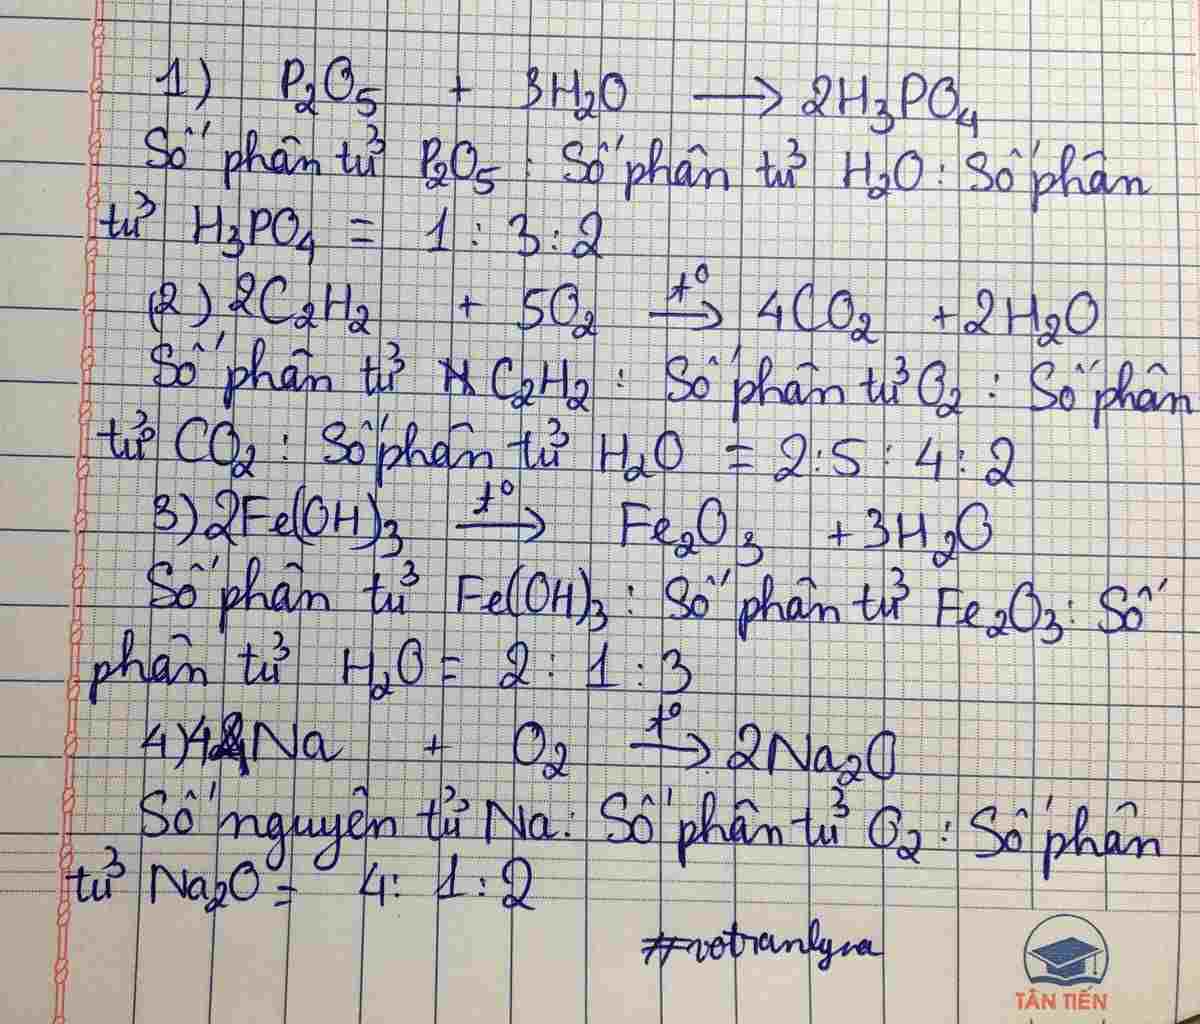 1) P₂O₅ + 3H₂O → 2H₃PO₄
Số phân tử P₂O₅ : Số phân tử H₂O : Số phân
tử H₃PO₄ = 1 : 3 : 2
(2) 2C₂H₂ + 5O₂ t⁰→ 4CO₂ + 2H₂O
Số phân tử C₂H₂ : Số phân tử O₂ : Số phân
tử CO₂ : Số phân tử H₂O = 2 : 5 : 4 : 2
3) 2Fe(OH)₃ t⁰→ Fe₂O₃ + 3H₂O
Số phân tử Fe(OH)₃ : Số phân tử Fe₂O₃ : Số
phân tử H₂O = 2 : 1 : 3
4) 4Na + O₂ t⁰→ 2Na₂O
Số nguyên tử Na : Số phân tử O₂ : Số phân
tử Na₂O = 4 : 1 : 2
#votranlyna
TÂN TIẾN